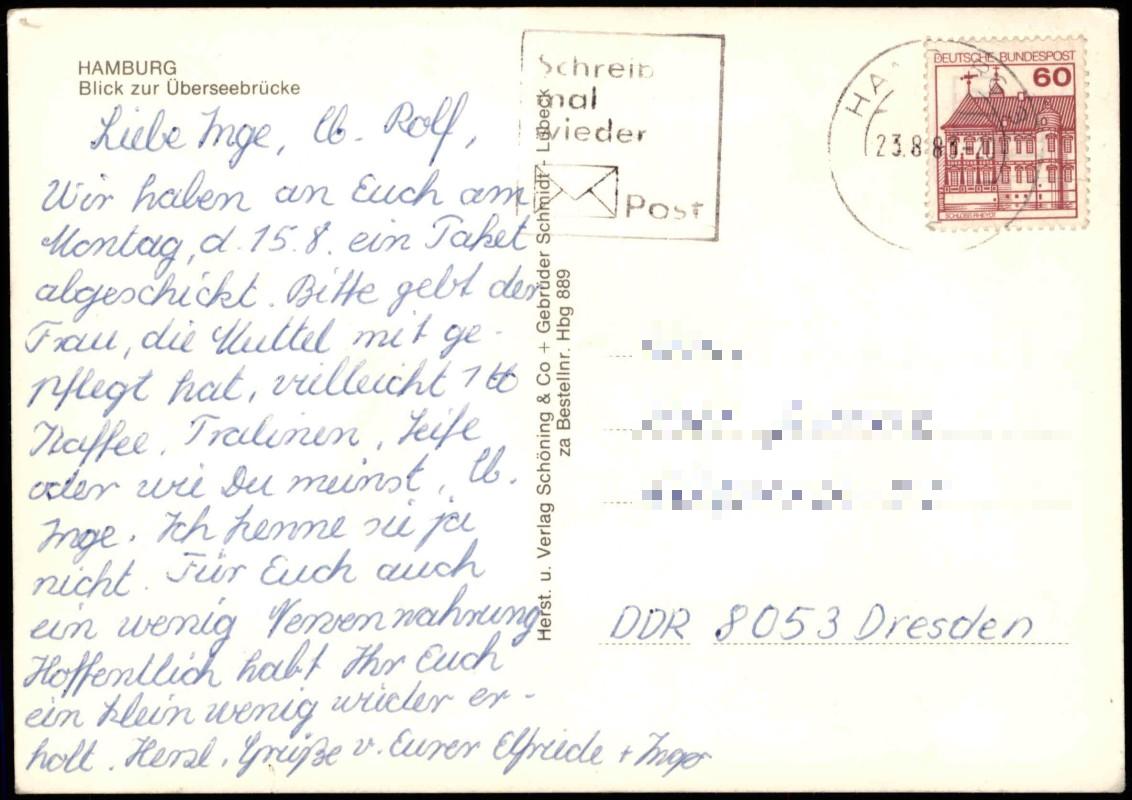 HAMBURG
Blick zur Überseebrücke
Liebe Inge, lb. Rolf,
Wir haben an Euch am
Montag, d. 15.8. ein Paket
abgeschickt. Bitte gebt der
Frau, die Muttel mit ge-
pflegt hat, vielleicht 1 ℔
Kaffee, Pralinen, Seife
oder wie Du meinst, lb.
Inge. Ich kenne sie ja
nicht. Für Euch auch
ein wenig Nervennahrung
Hoffentlich habt Ihr Euch
ein klein wenig wieder er-
holt. Herzl. Grüße v. Eurer Elfriede + Ingo
Herst. u. Verlag Schöning & Co + Gebrüder Schmidt - Lübeck
za Bestellnr. Hbg 889
Schreib
mal
wieder
Post
HA
23.8.8
DEUTSCHE BUNDESPOST
60
SCHLOSS RHEYDT
DDR 8053 Dresden